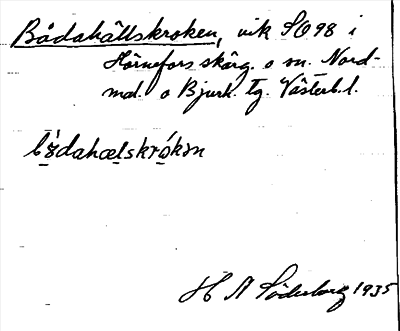 Bådahällskroken, vik SO 98 i
Hörnefors skärg. o sn. Nord-
mal. o Bjurh. tg. Västerb. l.
bådahælskrókən
H A Söderberg 1935